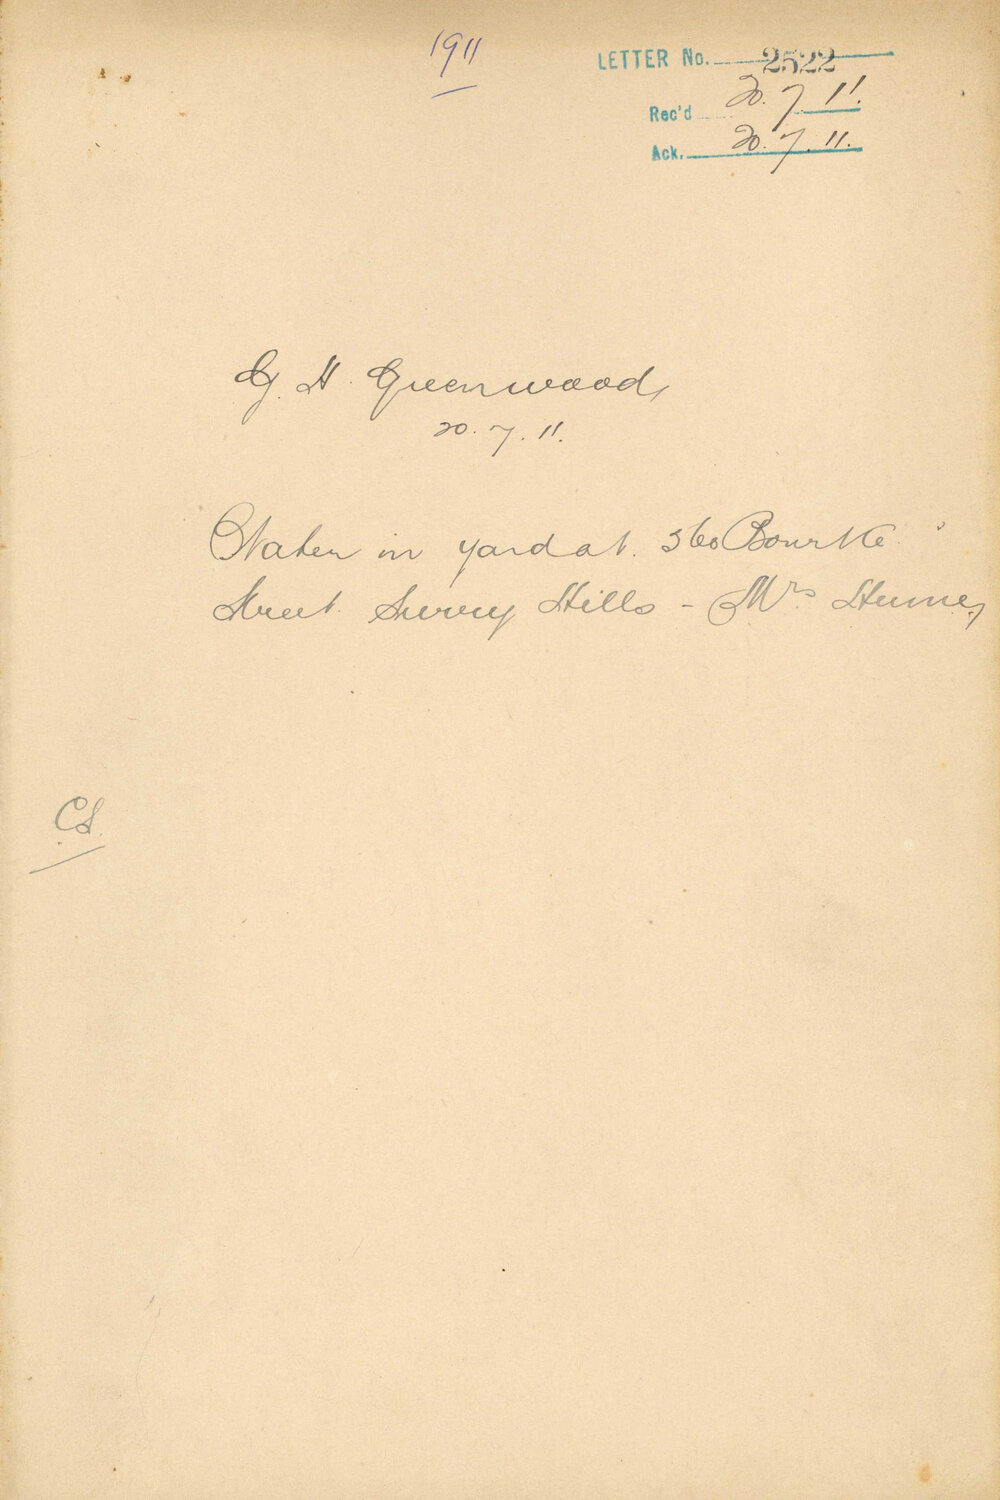 1911
LETTER No. 2522
Rec'd 20. 7. 11.
Ack. 20. 7. 11.
G. H. Greenwood,
20. 7. 11.
Water in yard at. 360 Bourke
Street. Surry Hills - Mrs
CS.